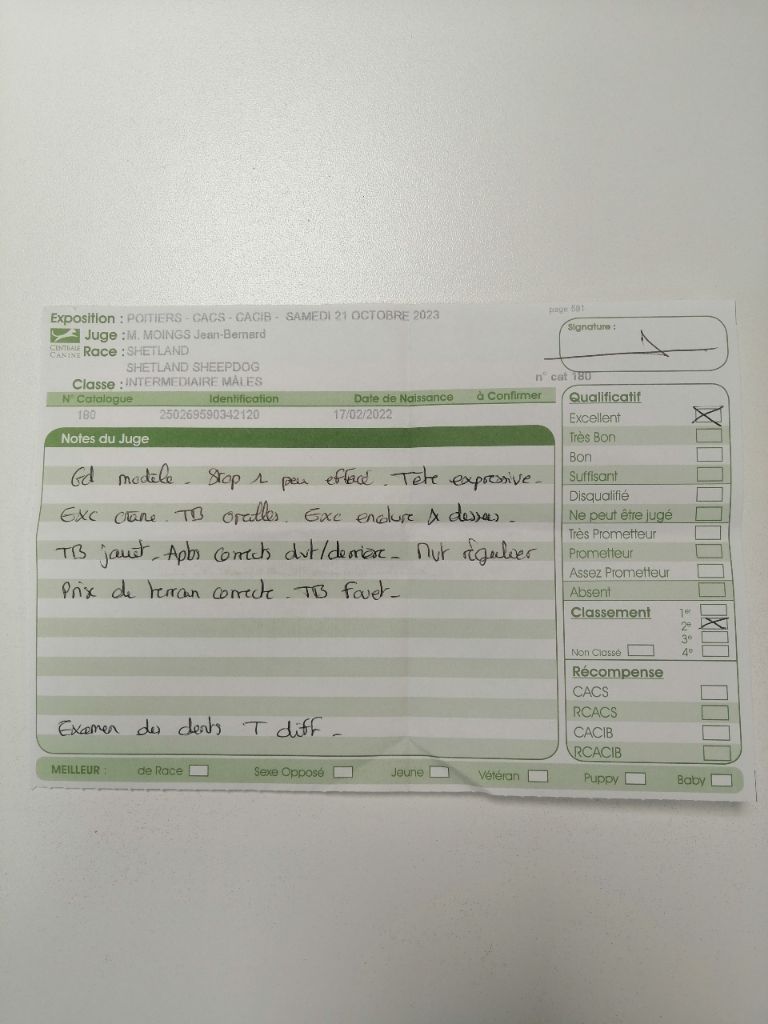 page 581
Exposition : POITIERS - CACS - CACIB - SAMEDI 21 OCTOBRE 2023
Signature :
CENTRALE CANINE
Juge : M. MOINGS Jean-Bernard
Race : SHETLAND
SHETLAND SHEEPDOG
n° cat 180
Classe : INTERMEDIAIRE MÂLES
N° Catalogue Identification Date de Naissance à Confirmer
180 250269590342120 17/02/2022
Notes du Juge
Gd modèle - Stop 1 peu effacé. Tête expressive -
Exc crâne. TB oreilles. Exc encolure & dessus -
TB jarret - Apbs corrects dvt/derrière - Mvt régulier
Prix de terrain correcte - TB fouet -
Examen des dents T diff -
Qualificatif
Excellent
Très Bon
Bon
Suffisant
Disqualifié
Ne peut être jugé
Très Prometteur
Prometteur
Assez Prometteur
Absent
Classement 1er
2e
3e
Non Classé 4e
Récompense
CACS
RCACS
CACIB
RCACIB
MEILLEUR : de Race Sexe Opposé Jeune Vétéran Puppy Baby